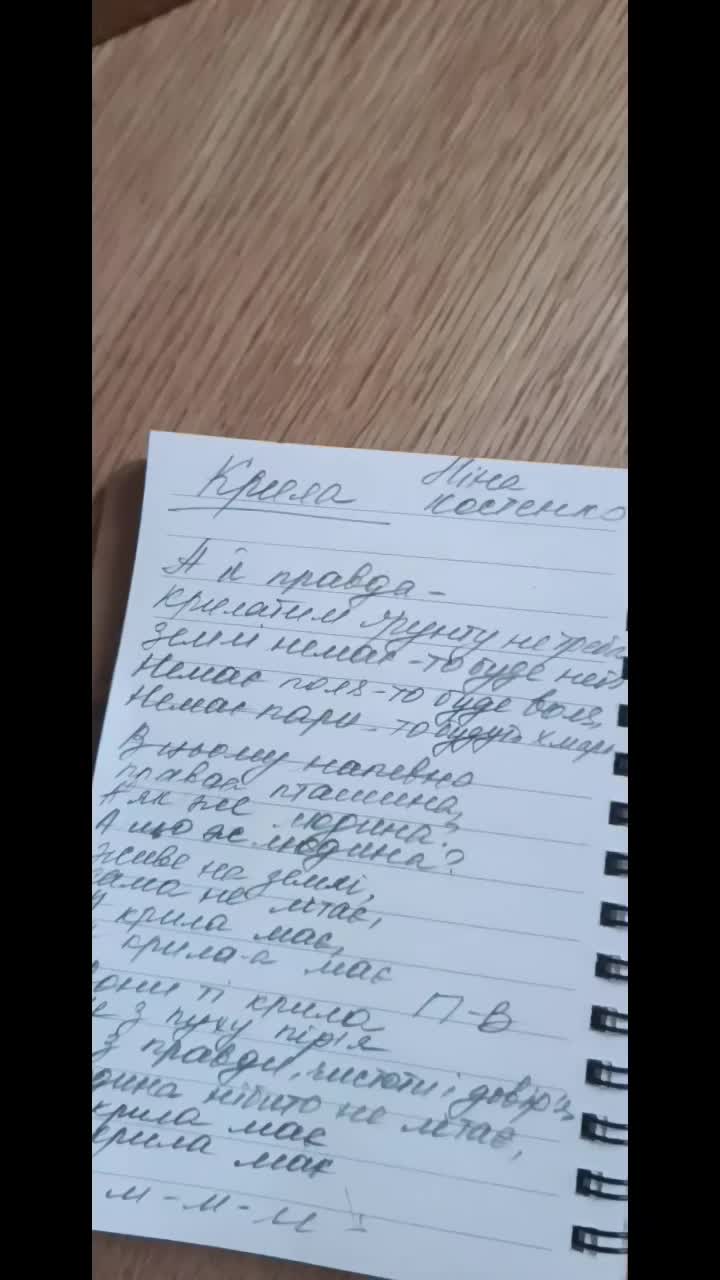 Крила
Ліна
Костенко
А й правда -
крилатим ґрунту не треба
Землі немає - то буде небо
Немає поля - то буде воля,
Немає пари - то будуть хмари
В цьому напевно
правда пташина,
А як же людина?
А що ж людина?
живе на землі,
сама не літає,
крила має,
крила-а має
Вони ті крила П-В
з пуху пір'я
з правди, чистоти і довір'я,
людина нібито не літає,
крила має
крила має
м-м-м